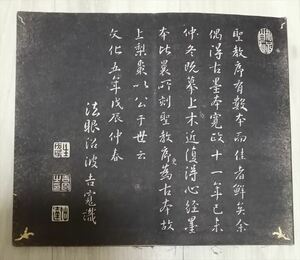 聖教序有數本而佳者鮮矣余
偶得古墨本寛政十一年己未
仲冬既摹上木近復得心經墨
本比曩所刻聖教序爲古本故
上梨棗以公于世云
文化五年戊辰仲春
法眼沼波吉寛識